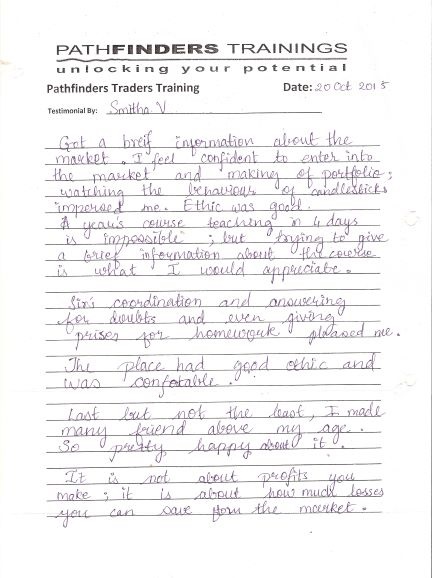 PATHFINDERS TRAININGS
unlocking your potential
Pathfinders Traders Training Date: 20 Oct 2015
Testimonial By: Smitha V
Got a breif information about the
market. I feel confident to enter into
the market and making of portfolio;
watching the behaviour of candlesticks
impersed me. Ethic was good.
A year's course teaching in 4 days
is impossible ; but trying to give
a brief information about the course
is what I would appreciate.
Sir's coordination and answering
for doubts and even giving
prises for homework pleased me.
The place had good ethic and
was confotable.
Last but not the least, I made
many friend above my age.
So pretty happy about it.
It is not about profits you
make ; it is about how much losses
you can save from the market.